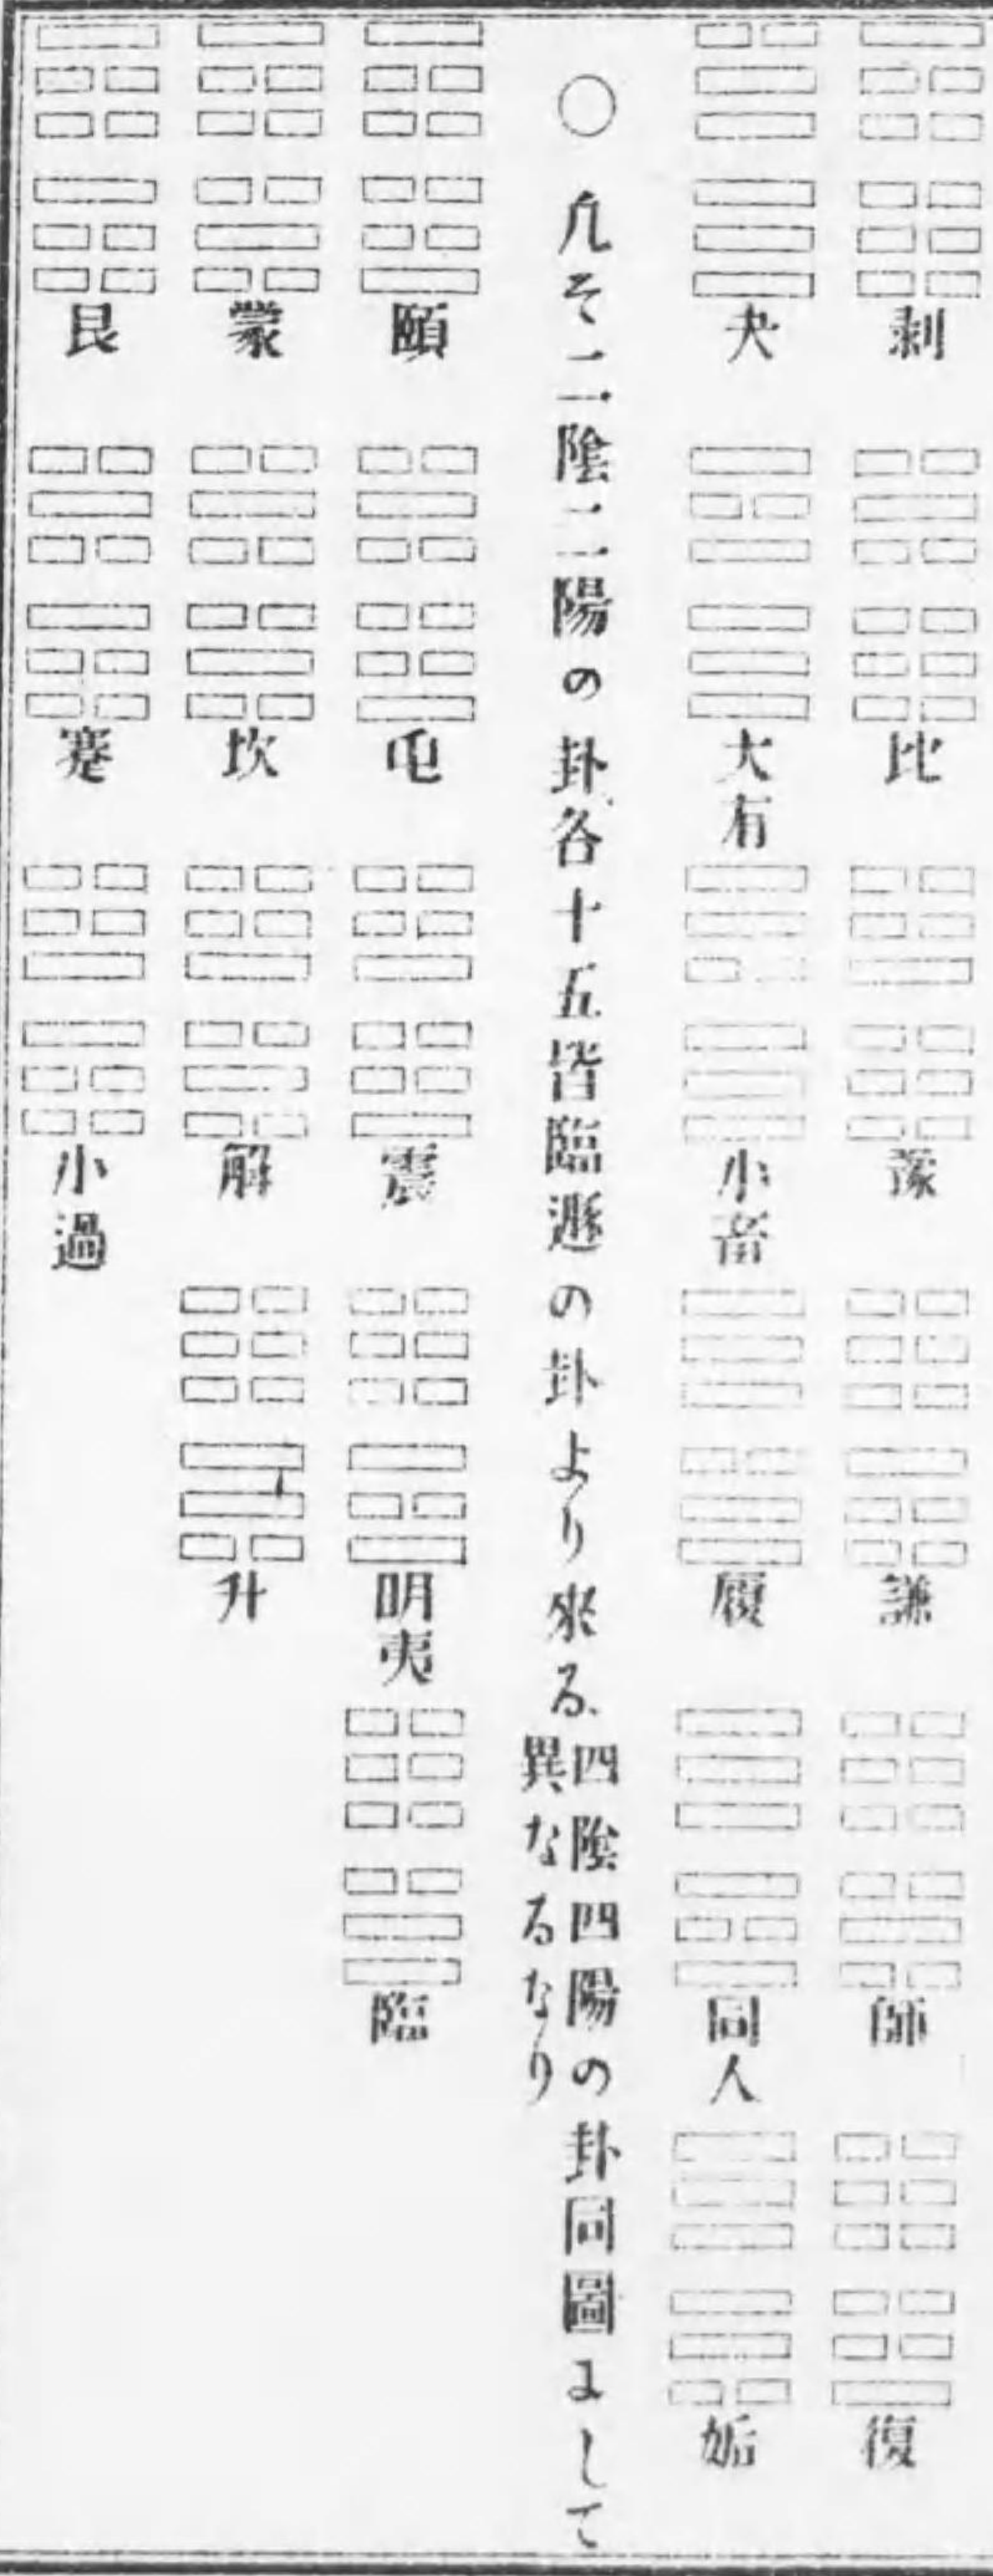 剥 比 豫 謙 師 復
夬 大有 小畜 履 同人 姤
○ 凡そ二陰二陽の卦各十五皆臨遯の卦より來る 四陰四陽の卦同圖よして
異なるなり
頤 屯 震 明夷 臨
蒙 坎 解 升
艮 蹇 小過